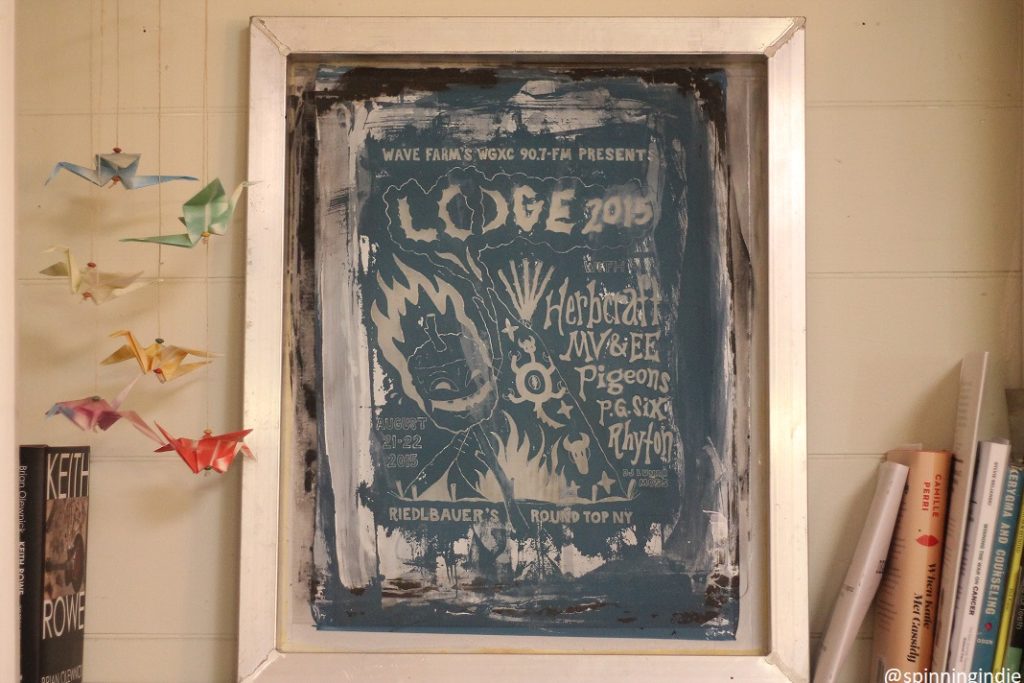 WAVE FARM'S WGXC 90.7-FM PRESENTS
LODGE 2015
WITH
Herbcraft
MV & EE
Pigeons
P.G. Six
Rhyton
AUGUST
21-22
2015
RIEDLBAUER'S ROUND TOP NY
KEITH
ROWE
BRIAN OLEWNICK
Brian Olewnick KEITH ROWE
CAMILLE
PERRI
When Katie
Met Cassidy
WINNING THE WAR ON CANCER
KERYGMA AND COUNSELING
@spinningindie